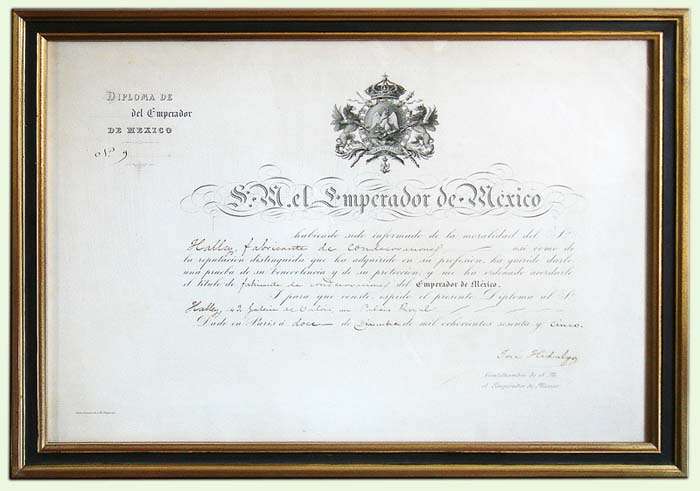 DIPLOMA DE
del Emperador
DE MEXICO
Nº 9
S. M. el Emperador de México
habiendo sido informado de la moralidad del Sr.
Halley, fabricante de condecoraciones así como de
la reputacion distinguida que ha adquirido en su profesion, ha querido darle
una prueba de su benevolencia y de su proteccion, y me ha ordenado acordarle
el titulo de fabricante de condecoraciones del Emperador de México.
Y para que conste, espido el presente Diploma al Sr.
Halley, Galerie de Valois, au Palais Royal
Dado en Paris á doce de de mil ochocientos sesenta y cinco.
José Hidalgo
Gentilhombre de S. M.
el Emperador de México